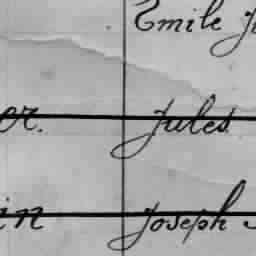 Emile
er. Jules
in Joseph